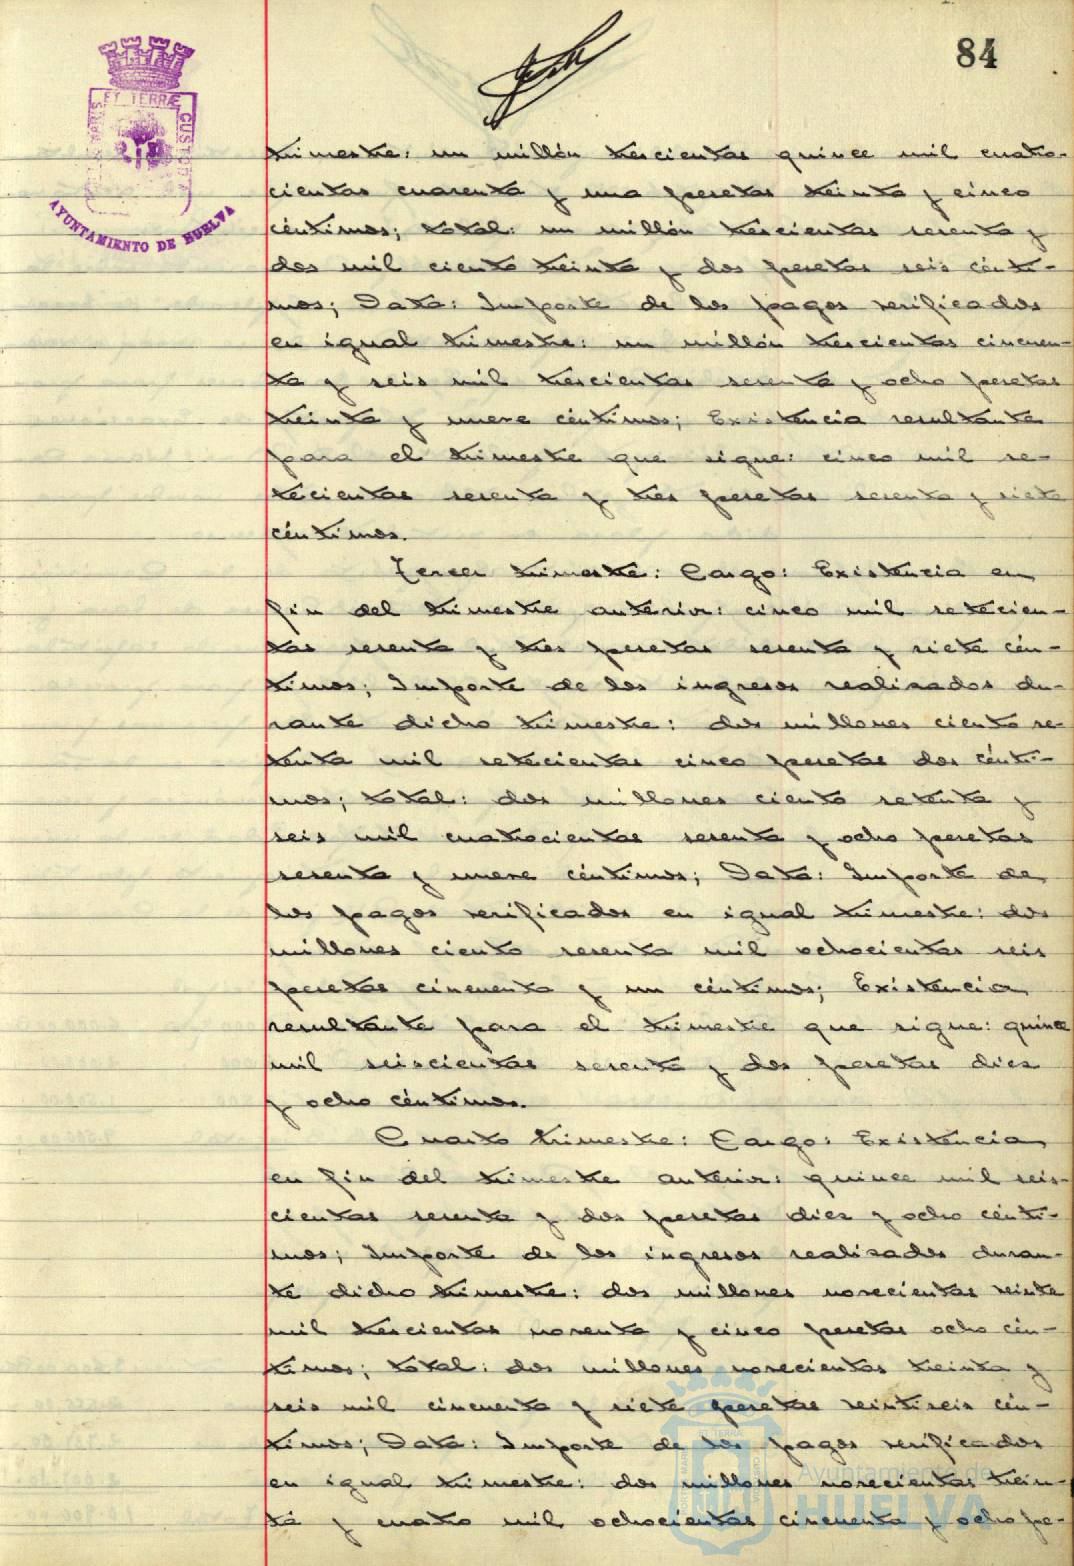 84
PORTUS MARIS ET TERRÆ CUSTODIA
AYUNTAMIENTO DE HUELVA
trimestre: un millón trescientas quince mil cuatro-
cientas cuarenta y una pesetas treinta y cinco
céntimos; total: un millón trescientas sesenta y
dos mil ciento treinta y dos pesetas seis cénti-
mos; Data: Importe de los pagos verificados
en igual trimestre: un millón trescientas cincuen-
ta y seis mil trescientas sesenta y ocho pesetas
treinta y nueve céntimos; Existencia resultante
para el trimestre que sigue: cinco mil se-
tecientas sesenta y tres pesetas sesenta y siete
céntimos.
Tercer trimestre: Cargo: Existencia en
fin del trimestre anterior: cinco mil setecien-
tas sesenta y tres pesetas sesenta y siete cén-
timos; Importe de los ingresos realizados du-
rante dicho trimestre: dos millones ciento se-
tenta mil setecientas cinco pesetas dos cénti-
mos; total: dos millones ciento setenta y
seis mil cuatrocientas sesenta y ocho pesetas
sesenta y nueve céntimos; Data: Importe de
los pagos verificados en igual trimestre: dos
millones ciento sesenta mil ochocientas seis
pesetas cincuenta y un céntimos; Existencia
resultante para el trimestre que sigue: quince
mil seiscientas sesenta y dos pesetas diez
y ocho céntimos.
Cuarto trimestre: Cargo: Existencia
en fin del trimestre anterior: quince mil seis-
cientas sesenta y dos pesetas diez y ocho cénti-
mos; Importe de los ingresos realizados duran-
te dicho trimestre: dos millones novecientas veinte
mil trescientas noventa y cinco pesetas ocho cén-
timos; total: dos millones novecientas treinta y
seis mil cincuenta y siete pesetas veintiseis cén-
timos; Data: Importe de los pagos verificados
en igual trimestre: dos millones novecientas trein-
ta y cuatro mil ochocientas cincuenta y ocho pe-
Ayuntamiento de
HUELVA